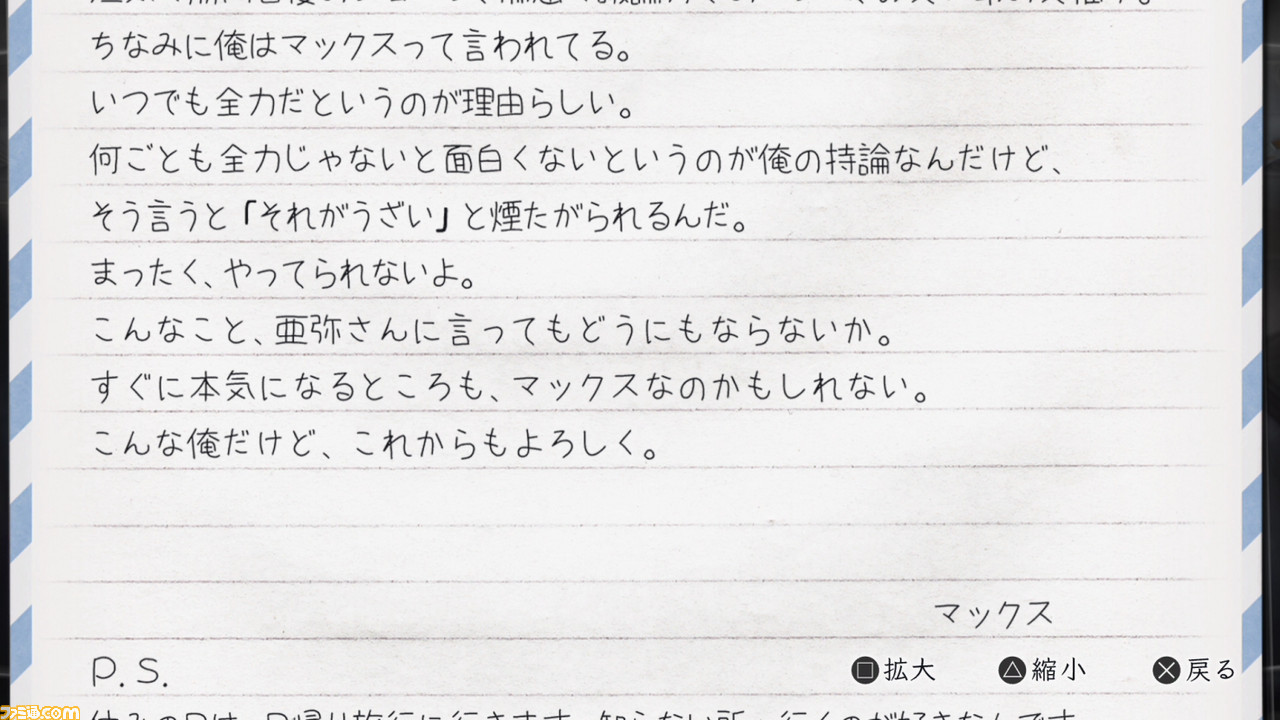 ちなみに俺はマックスって言われてる。
いつでも全力だというのが理由らしい。
何ごとも全力じゃないと面白くないというのが俺の持論なんだけど、
そう言うと「それがうざい」と煙たがられるんだ。
まったく、やってられないよ。
こんなこと、亜弥さんに言ってもどうにもならないか。
すぐに本気になるところも、マックスなのかもしれない。
こんな俺だけど、これからもよろしく。
マックス
P.S.
□拡大 △縮小 ×戻る
休みの日は、日帰り旅行に行きます。知らない所へ行くのが好きなんです
ファミ通.com